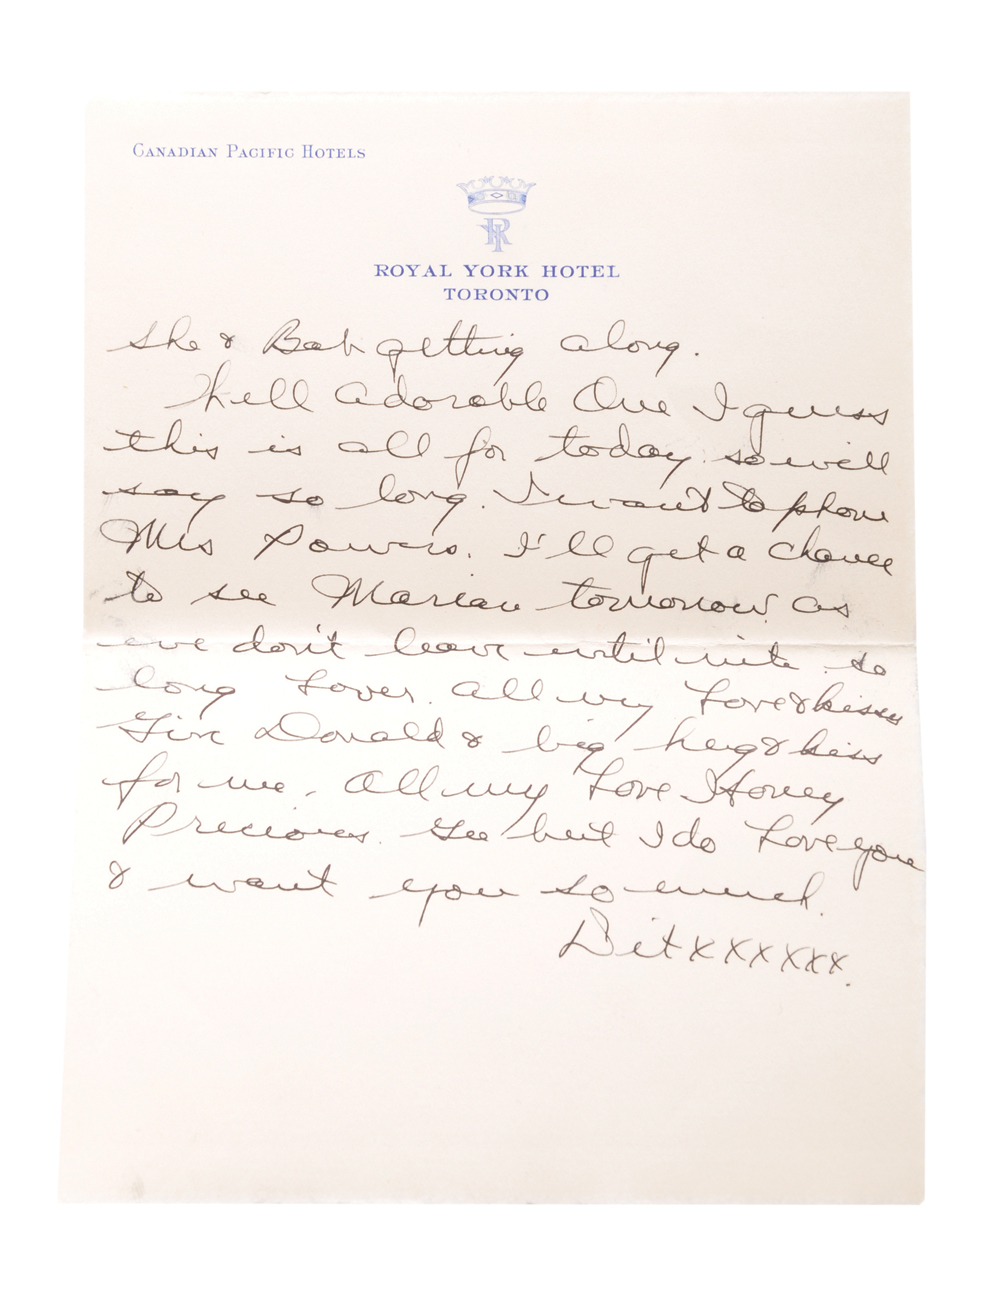 CANADIAN PACIFIC HOTELS
RYH
ROYAL YORK HOTEL
TORONTO
she & Bob getting along.
Well adorable One I guess
this is all for today so will
say so long. I want to phone
Mrs Powers. I'll get a chance
to see Marian tomorrow as
we don't leave until nite so
long Lover. All my Love & kisses
Give Donald a big hug & kiss
for me. All my Love Honey
Precious. Gee but I do Love you
& want you so much.
Dit xxxxxxx.